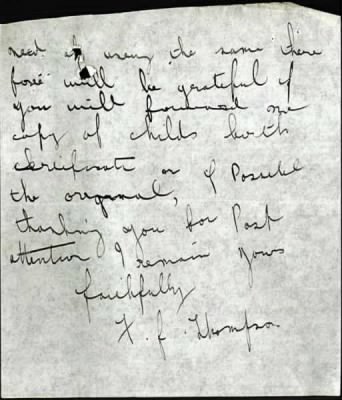 need of using the same there
fore will be grateful if
you will forward me
copy of childs birth
certificate or the original, if Possible
thanking you for Past
attention I remain yours
faithfully
F. J. Thompson